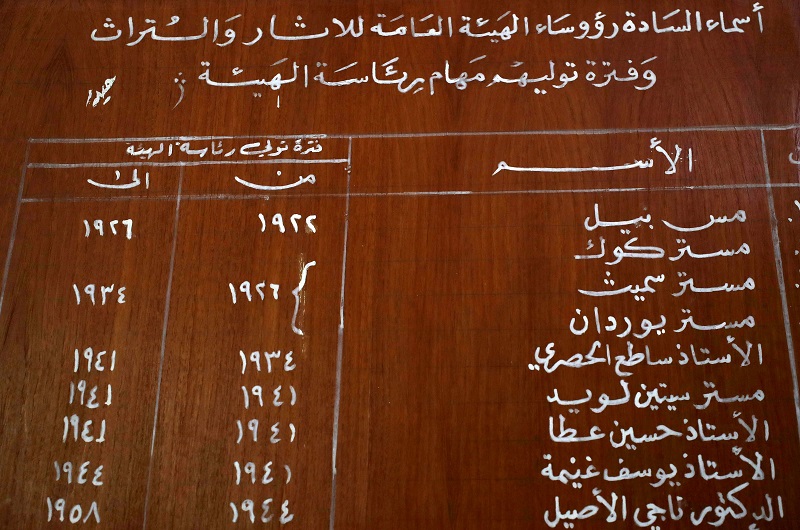 أسماء السادة رؤوساء الهيئة العامة للاثار والتراث
وفترة توليهم مهام رئاسة الهيئة
الأســم فترة تولي رئاسة الهيئة
من الى
مس بيل ١٩٢٢ ١٩٢٦
مستر كوك
مستر سميث ١٩٢٦ ١٩٣٤
مستر يوردان
الأستاذ ساطع الحصري ١٩٣٤ ١٩٤١
مستر سيتين لويد ١٩٤١ ١٩٤١
الأستاذ حسين عطا ١٩٤١ ١٩٤١
الأستاذ يوسف غنيمة ١٩٤١ ١٩٤٤
الدكتور ناجي الأصيل ١٩٤٤ ١٩٥٨